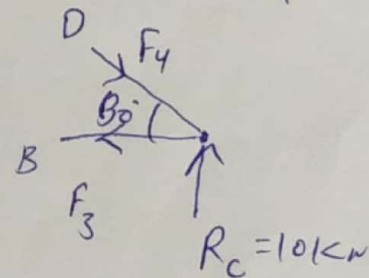 D
F4
30°
B
F3
Rc = 10kN